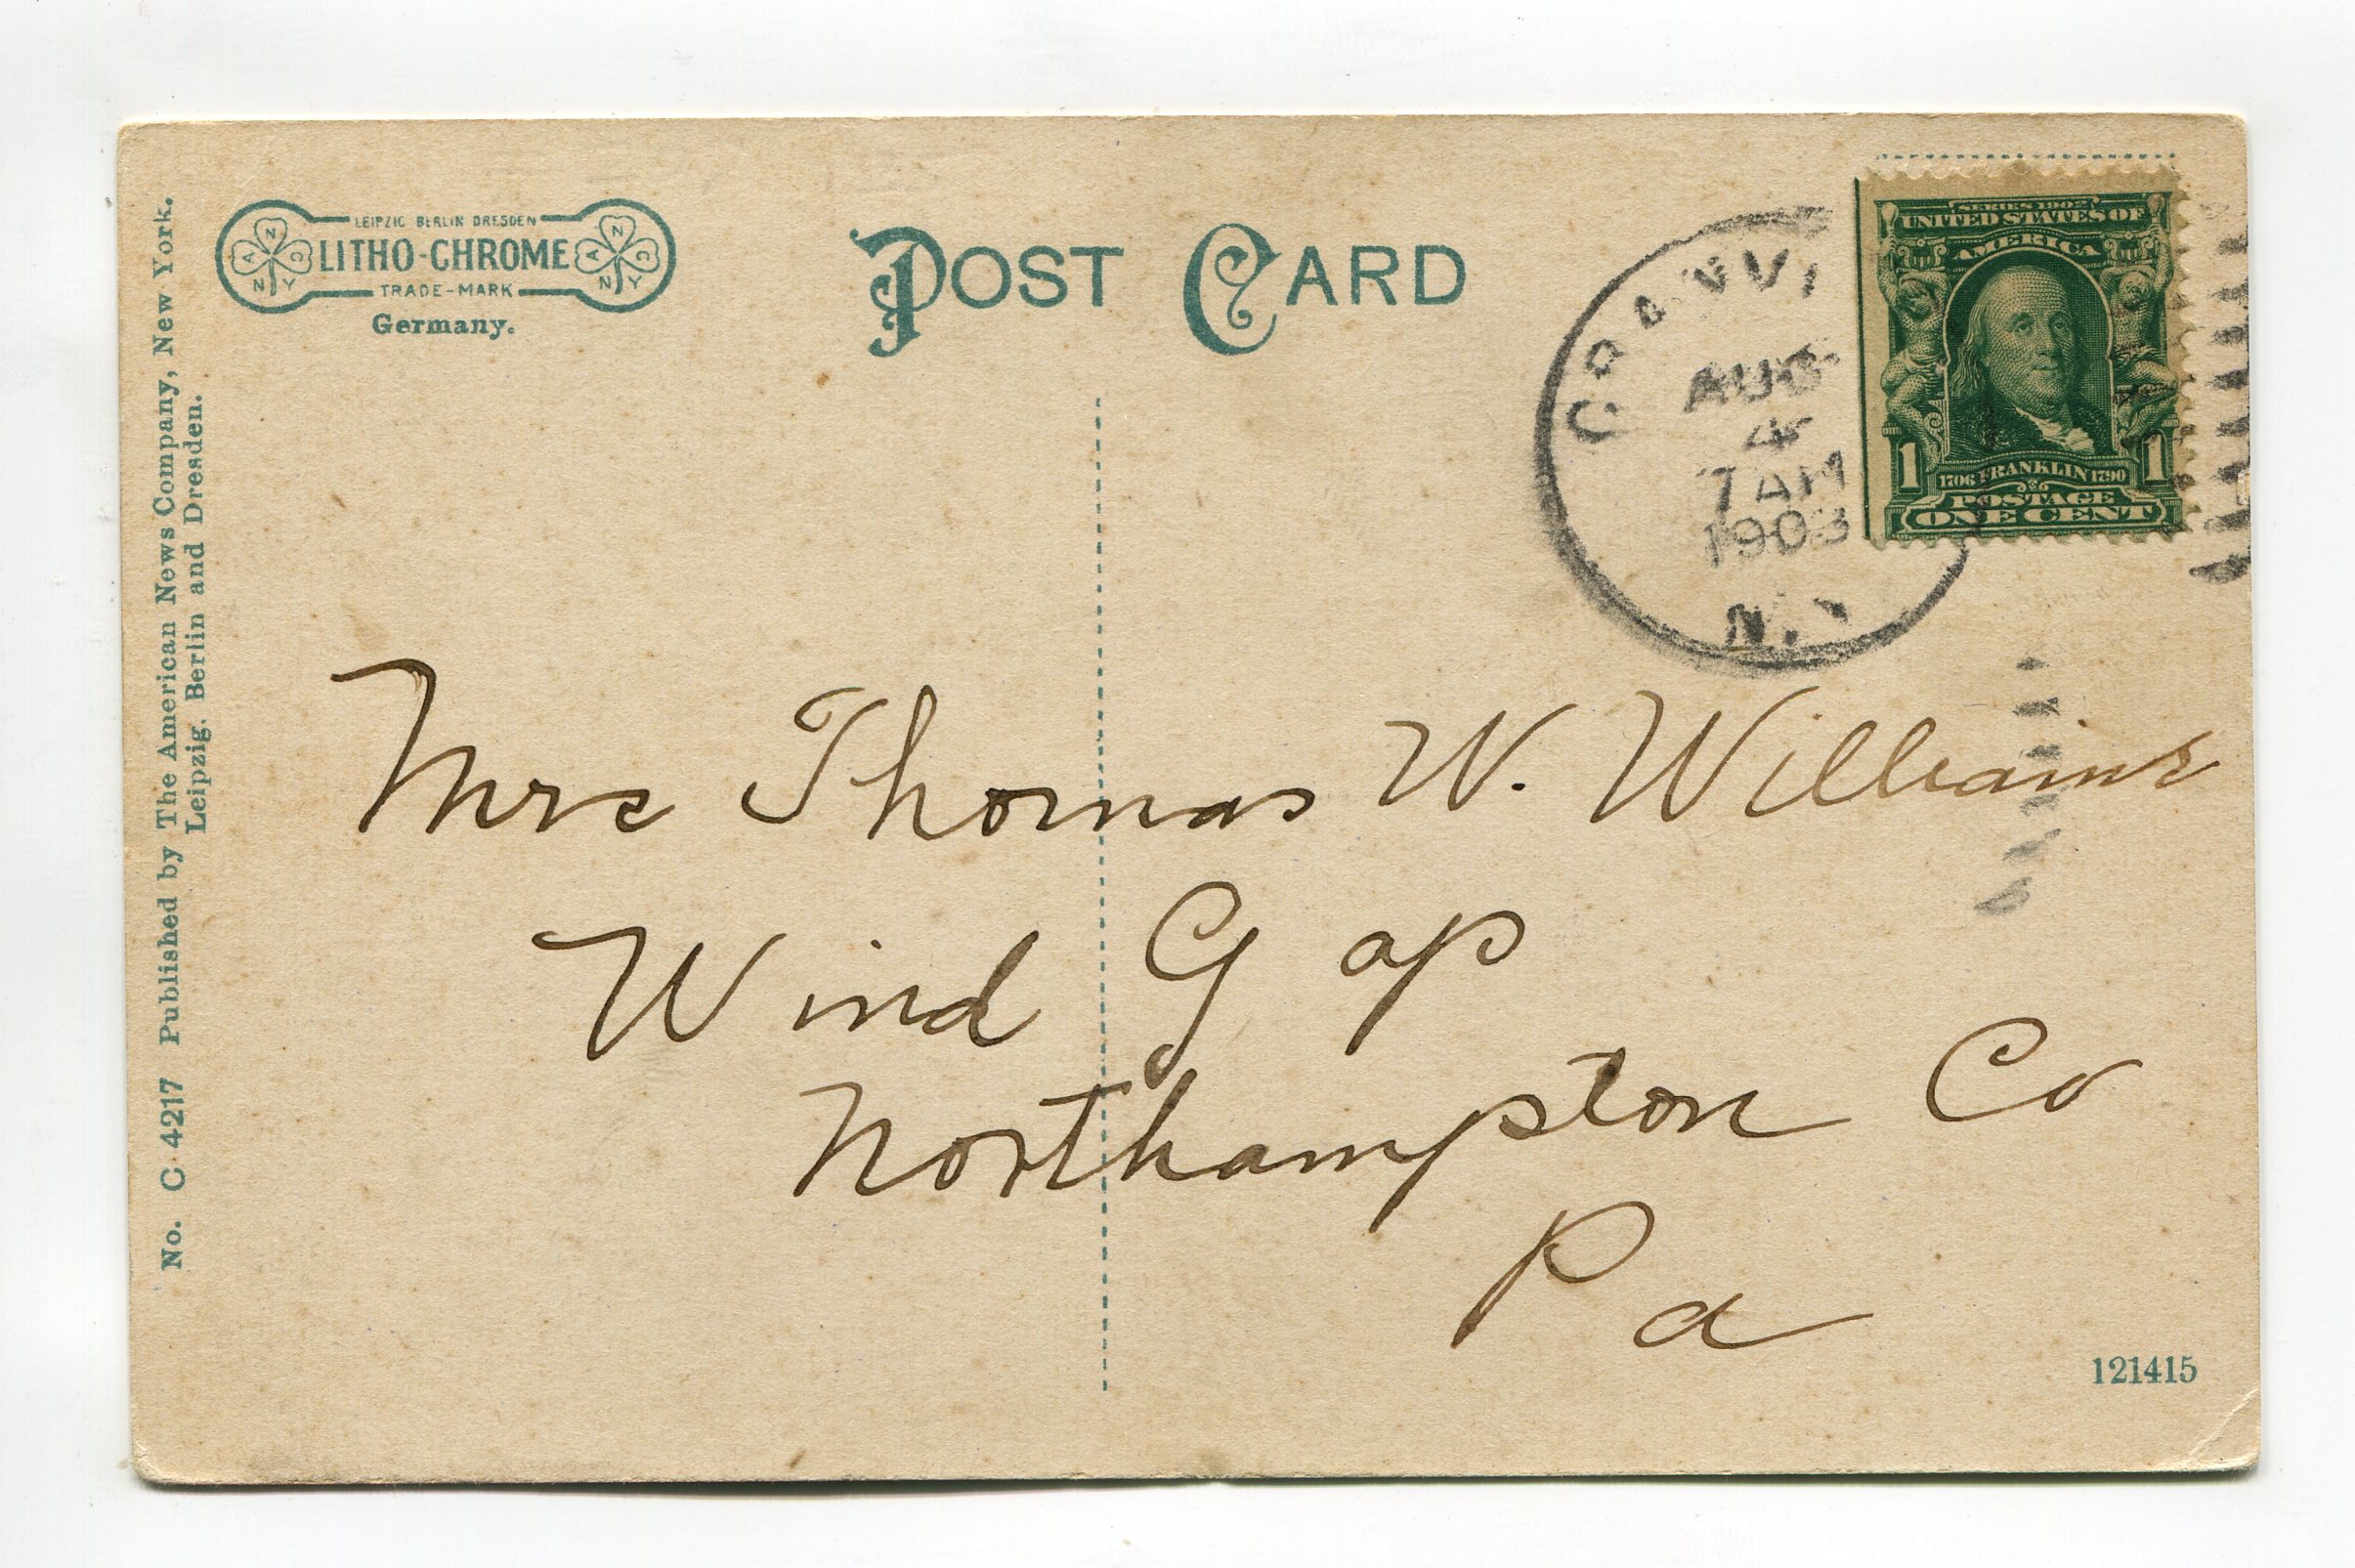 No. C 4217 Published by The American News Company, New York.
Leipzig. Berlin and Dresden.
LEIPZIG BERLIN DRESDEN
LITHO-CHROME
TRADE-MARK
Germany.
A N C N Y
A N C N Y
POST CARD
AUG
4
7 AM
N.
SERIES 1902
UNITED STATES OF
AMERICA
1 1
1706 FRANKLIN 1790
POSTAGE
ONE CENT
Mrs Thomas W. Williams
Wind Gap
Northampton Co
Pa
121415